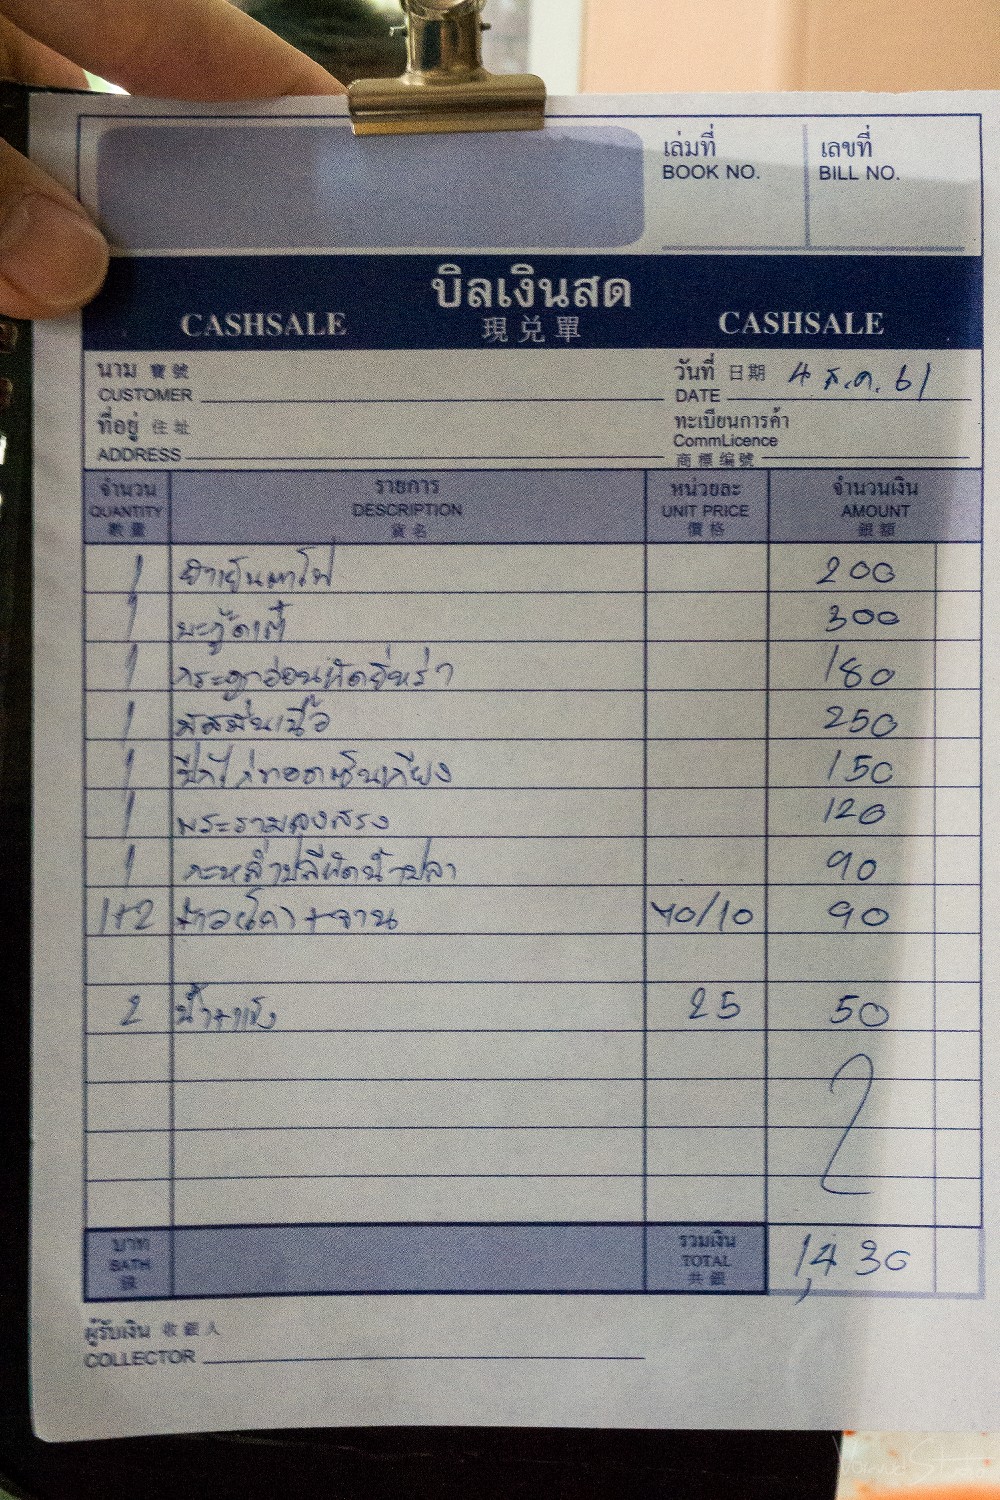 เล่มที่ เลขที่
BOOK NO. BILL NO.
บิลเงินสด
CASHSALE 現兌單 CASHSALE
นาม 寶號 วันที่ 日期 4 ธ.ค. 61
CUSTOMER DATE
ที่อยู่ 住址 ทะเบียนการค้า
CommLicence
ADDRESS 商標编號
จำนวน รายการ หน่วยละ จำนวนเงิน
QUANTITY DESCRIPTION UNIT PRICE AMOUNT
數量 貨名 價格 銀額
1 200
1 300
1 กระดูกอ่อนผัดยี่หร่า 180
1 มัสมั่นเนื้อ 250
1 ปีกไก่ทอดเซ็นเกียง 150
1 พระรามลงสรง 120
1 กะหล่ำปลีผัดน้ำปลา 90
1+2 ข้าวโถ + จาน 70/10 90
2 น้ำแข็ง 25 50
2
บาท รวมเงิน
BATH TOTAL 1,430
銀 共銀
ผู้รับเงิน 收銀人
COLLECTOR